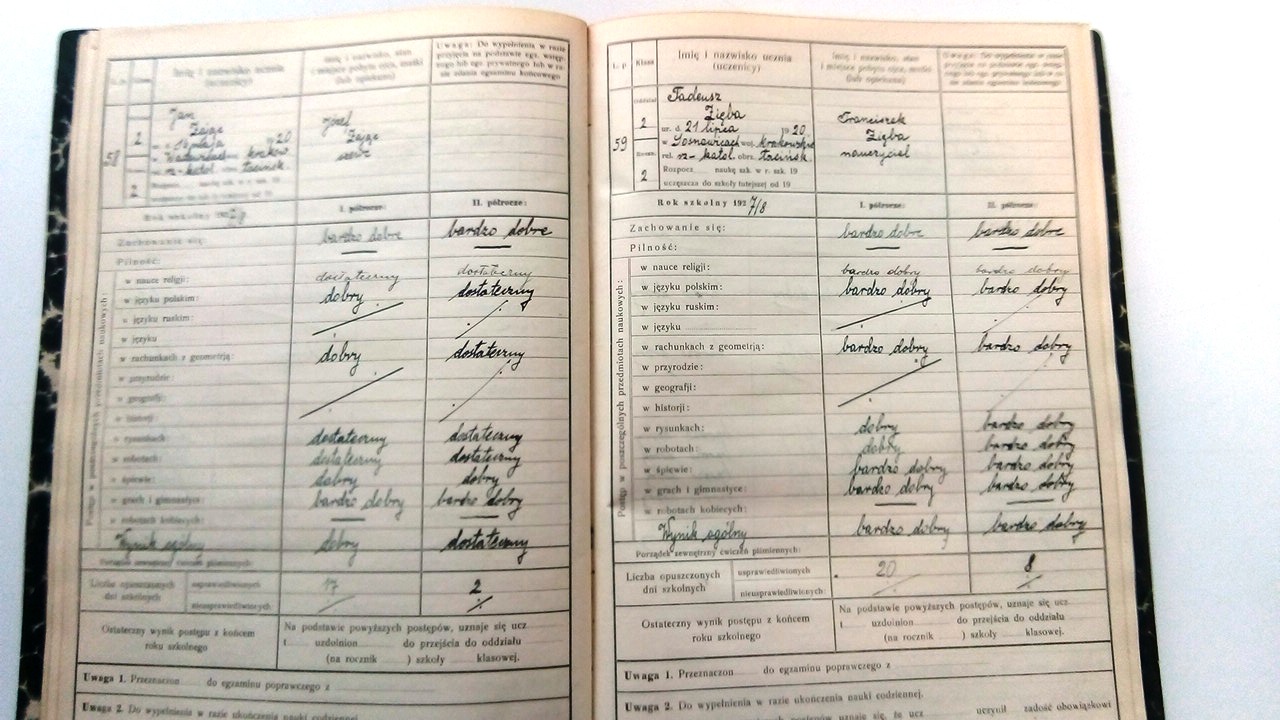 Imię i nazwisko ucznia
(uczenicy)
imię i nazwisko, stan
i miejsce pobytu ojca, matki
(lub opiekuna)
Uwaga: Do wypełnienia w razie
przyjęcia na podstawie egz. wstęp-
nego lub egz. prywatnego lub w ra-
zie zdania egzaminu końcowego
58
2
2
Jan
Zając
20
rz-katol.
Józef
Zając
szewc
Rok szkolny 192
I. półrocze:
II. półrocze:
Zachowanie się: bardzo dobre bardzo dobre
Pilność:
Postęp w poszczególnych przedmiotach naukowych:
w nauce religji: dostateczny dostateczny
w języku polskim: dobry dostateczny
w języku ruskim:
w języku
w rachunkach z geometrją: dobry dostateczny
w przyrodzie:
w geografji:
w historji:
w rysunkach: dostateczny dostateczny
w robotach: dostateczny dostateczny
w śpiewie: dobry dobry
w grach i gimnastyce: bardzo dobry bardzo dobry
w robotach kobiecych:
Wynik ogólny dobry dostateczny
Porządek zewnętrzny ćwiczeń piśmiennych:
Liczba opuszczonych
dni szkolnych
usprawiedliwionych 17 2
nieusprawiedliwionych
Ostateczny wynik postępu z końcem
roku szkolnego
Na podstawie powyższych postępów, uznaje się ucz
t uzdolnion do przejścia do oddziału
(na rocznik ) szkoły klasowej.
Uwaga 1. Przeznaczon do egzaminu poprawczego z
Uwaga 2. Do wypełnienia w razie ukończenia nauki codziennej.
L. p.
Klasa
Imię i nazwisko ucznia
(uczenicy)
imię i nazwisko, stan
i miejsce pobytu ojca, matki
(lub opiekuna)
Uwaga: Do wypełnienia w razie
przyjęcia na podstawie egz. wstęp-
nego lub egz. prywatnego lub w ra-
zie zdania egzaminu końcowego
59
Oddział
2
Roczn.
2
Tadeusz
Zięba
ur. d. 21 lipca 1920
w Sosnowicach woj. krakowskie
rel. rz-katol. obrz. łacińsk.
Rozpocz naukę szk. w r. szk. 19
uczęszcza do szkoły tutejszej od 19
Franciszek
Zięba
nauczyciel
Rok szkolny 1927/8
I. półrocze:
II. półrocze:
Zachowanie się: bardzo dobre bardzo dobre
Pilność:
Postęp w poszczególnych przedmiotach naukowych:
w nauce religji: bardzo dobry bardzo dobry
w języku polskim: bardzo dobry bardzo dobry
w języku ruskim:
w języku
w rachunkach z geometrją: bardzo dobry bardzo dobry
w przyrodzie:
w geografji:
w historji:
w rysunkach: dobry bardzo dobry
w robotach: dobry bardzo dobry
w śpiewie: bardzo dobry bardzo dobry
w grach i gimnastyce: bardzo dobry bardzo dobry
w robotach kobiecych:
Wynik ogólny bardzo dobry bardzo dobry
Porządek zewnętrzny ćwiczeń piśmiennych:
Liczba opuszczonych
dni szkolnych
usprawiedliwionych 20 8
nieusprawiedliwionych:
Ostateczny wynik postępu z końcem
roku szkolnego
Na podstawie powyższych postępów, uznaje się ucz
t uzdolnion do przejścia do oddziału
(na rocznik ) szkoły klasowej.
Uwaga 1. Przeznaczon do egzaminu poprawczego z
Uwaga 2. Do wypełnienia w razie ukończenia nauki codziennej.
postępów uznaje się, że ucz uczynił zadość obowiązkowi